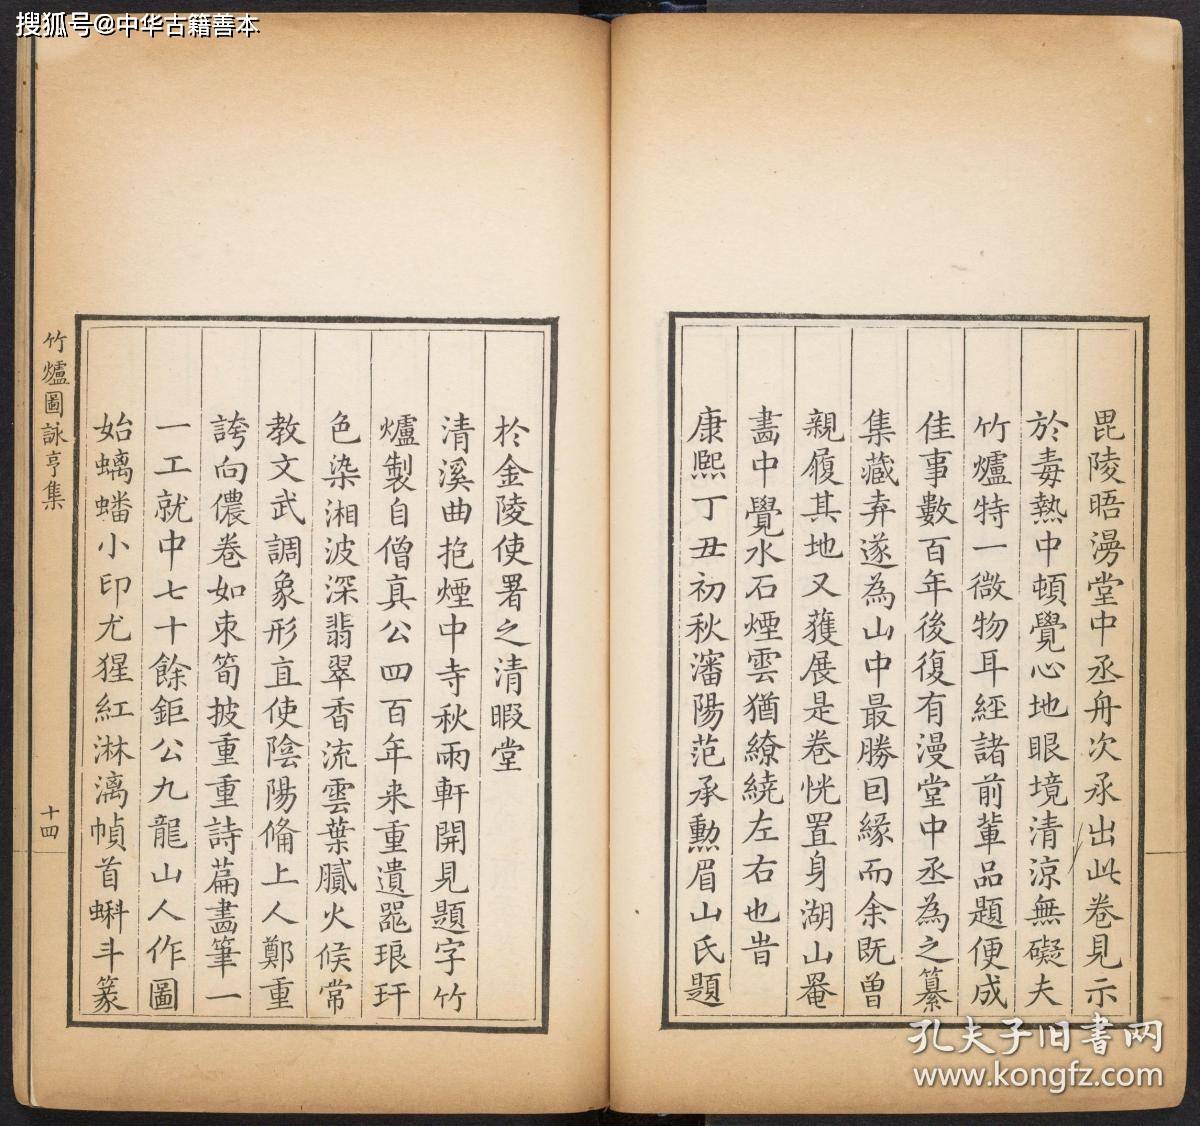 搜狐号@中华古籍善本
毘陵晤漫堂中丞舟次承出此卷見示
於毒熱中頓覺心地眼境清涼無礙夫
竹爐特一微物耳經諸前輩品題便成
佳事數百年後復有漫堂中丞為之纂
集藏弆遂為山中最勝回緣而余既曾
親履其地又獲展是卷恍置身湖山罨
畵中覺水石煙雲猶繚繞左右也旹
康熙丁丑初秋瀋陽范承勳眉山氏題
於金陵使署之清暇堂
清溪曲抱煙中寺秋雨軒開見題字竹
爐製自僧真公四百年来重遺噐琅玕
色染湘波深翡翠香流雲葉膩火候常
教文武調象形直使陰陽俻上人鄭重
誇向儂卷如束筍披重重詩篇畵筆一
一工就中七十餘鉅公九龍山人作圖
始螭蟠小印尤猩紅淋漓幀首蝌斗篆
竹爐圖詠亨集
十四
孔夫子旧书网
www.kongfz.com